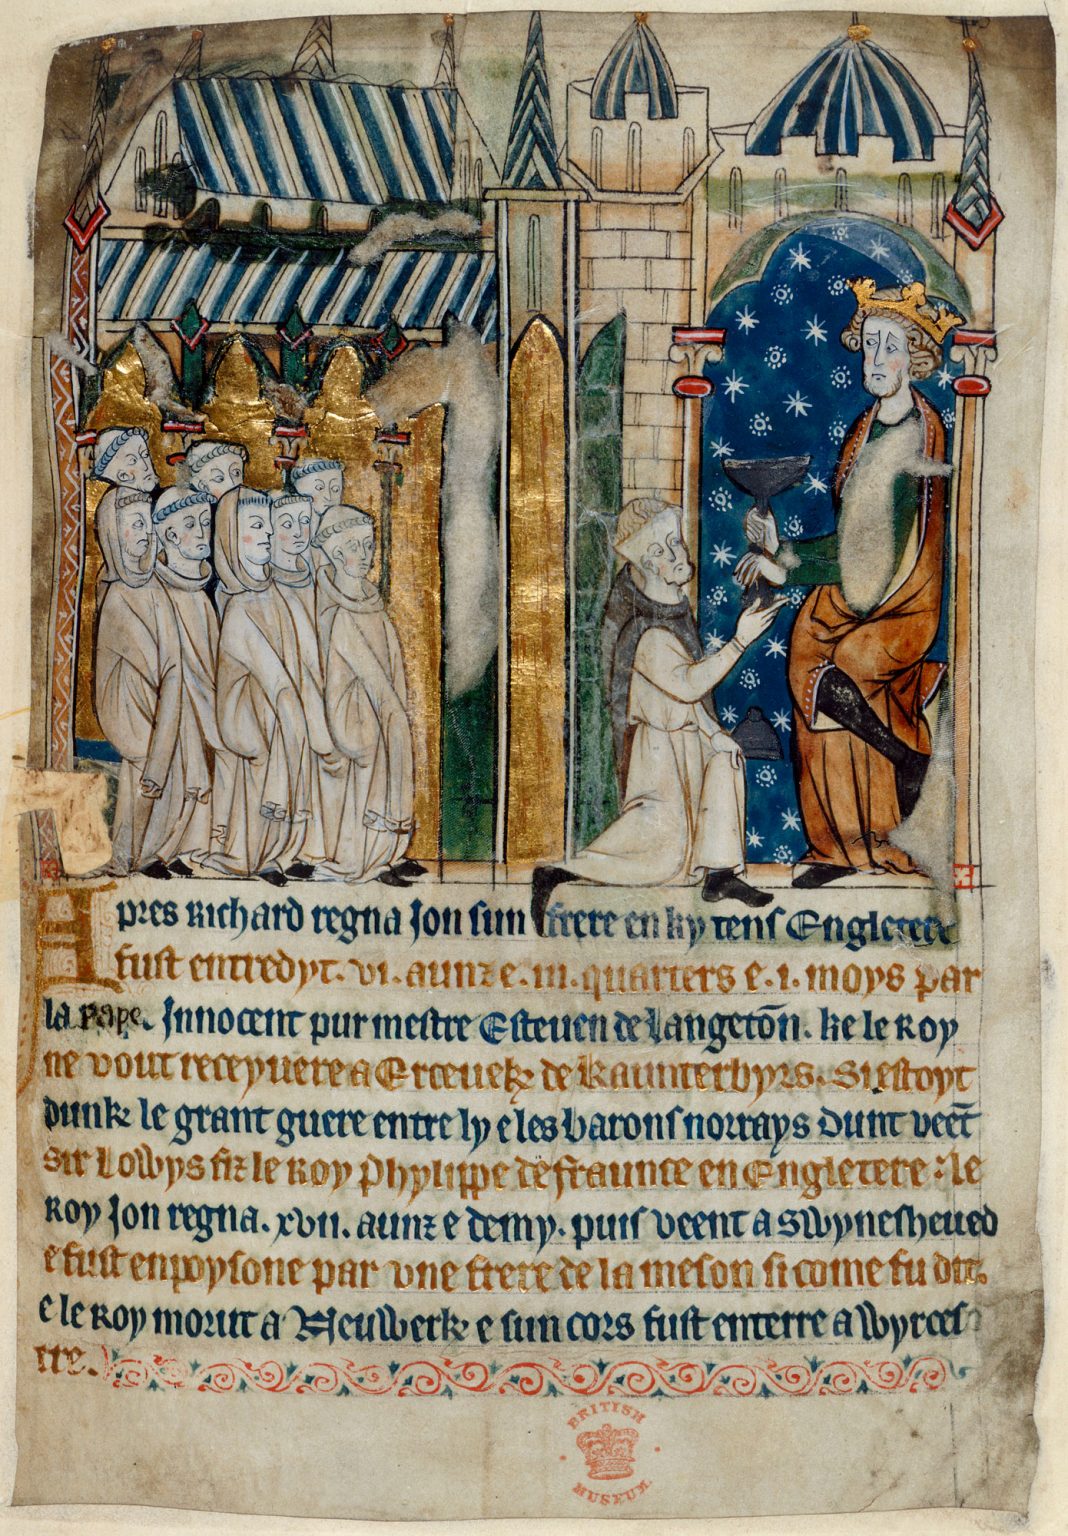 Apres Richard regna Jon sun frere en ky tens Engletere
fust entredyt. vi. aunz e. iii. quarters e. i. moys par
la pape. Innocent pur mestre Esteuen de Langetōn. ke le Roy
ne vout receyuere a Erceuekz de Kaunterbyrs. Si estoyt
dunk le grant guere entre ly e les barons norrays dunt veēt
sir Lowys fiz le Roy Phylippe de fraunce en Engletere : le
Roy Jon regna. xvii. aunz e demy. puis veent a Swynesheued
e fust enpoysone par vne frere de la meson si come fu dit.
e le Roy morut a Neuwerk e sun cors fust enterre a Wyrces
tre.
BRITISH
MUSEUM